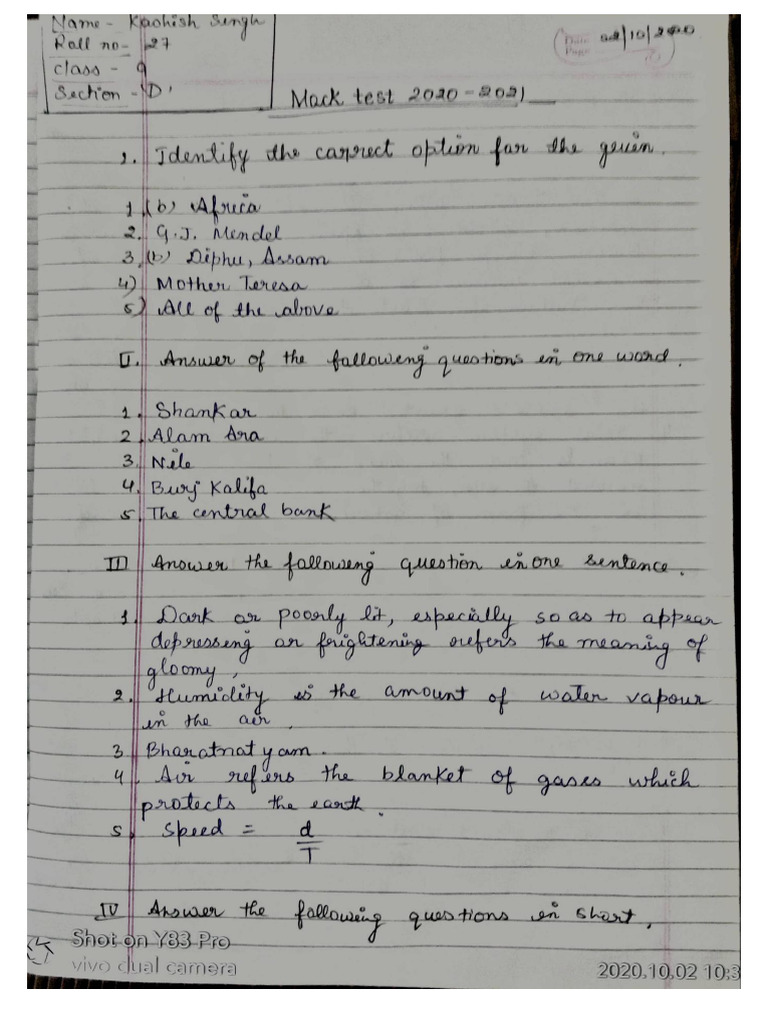 Name - Kashish Singh
Roll no- 27
class - 9
Section - 'D'
Date
Page
02/10/2020
Mock test 2020-2021
1. Identify the correct option for the given.
1. (b) Africa
2. G.J. Mendel
3. (b) Diphu, Assam
4) Mother Teresa
5) All of the above
II. Answer of the following questions in one word.
1. Shankar
2. Alam Ara
3. Nile
4. Burj Kalifa
5. The central bank
III Answer the following question in one sentence.
1. Dark or poorly lit, especially so as to appear
depressing or frightening refers the meaning of
gloomy,
2. Humidity is the amount of water vapour
in the air.
3. Bharatnatyam.
4. Air refers the blanket of gases which
protects the earth.
5. Speed = d
T
IV Answer the following questions in short,
Shot on Y83 Pro
vivo dual camera
2020.10.02 10:3